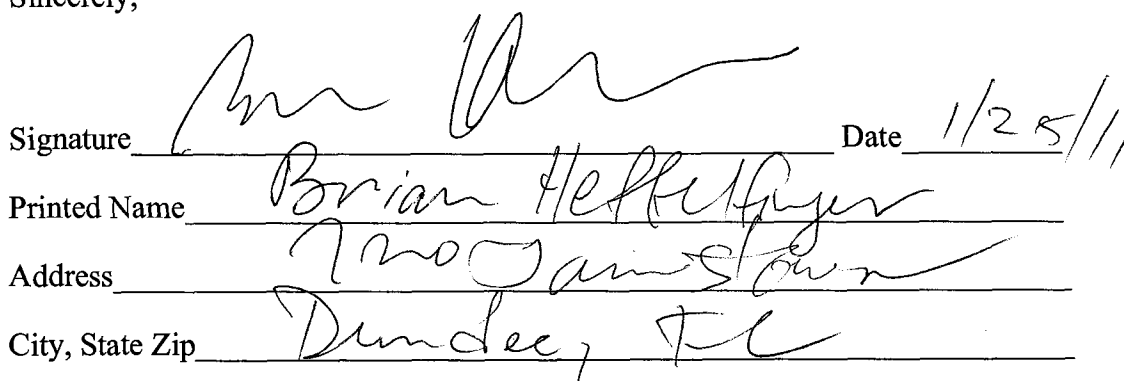 Sincerely,
Signature Date 1/25/11
Printed Name Brian Heffelfinger
Address Jamestown
City, State Zip Dundee, FL